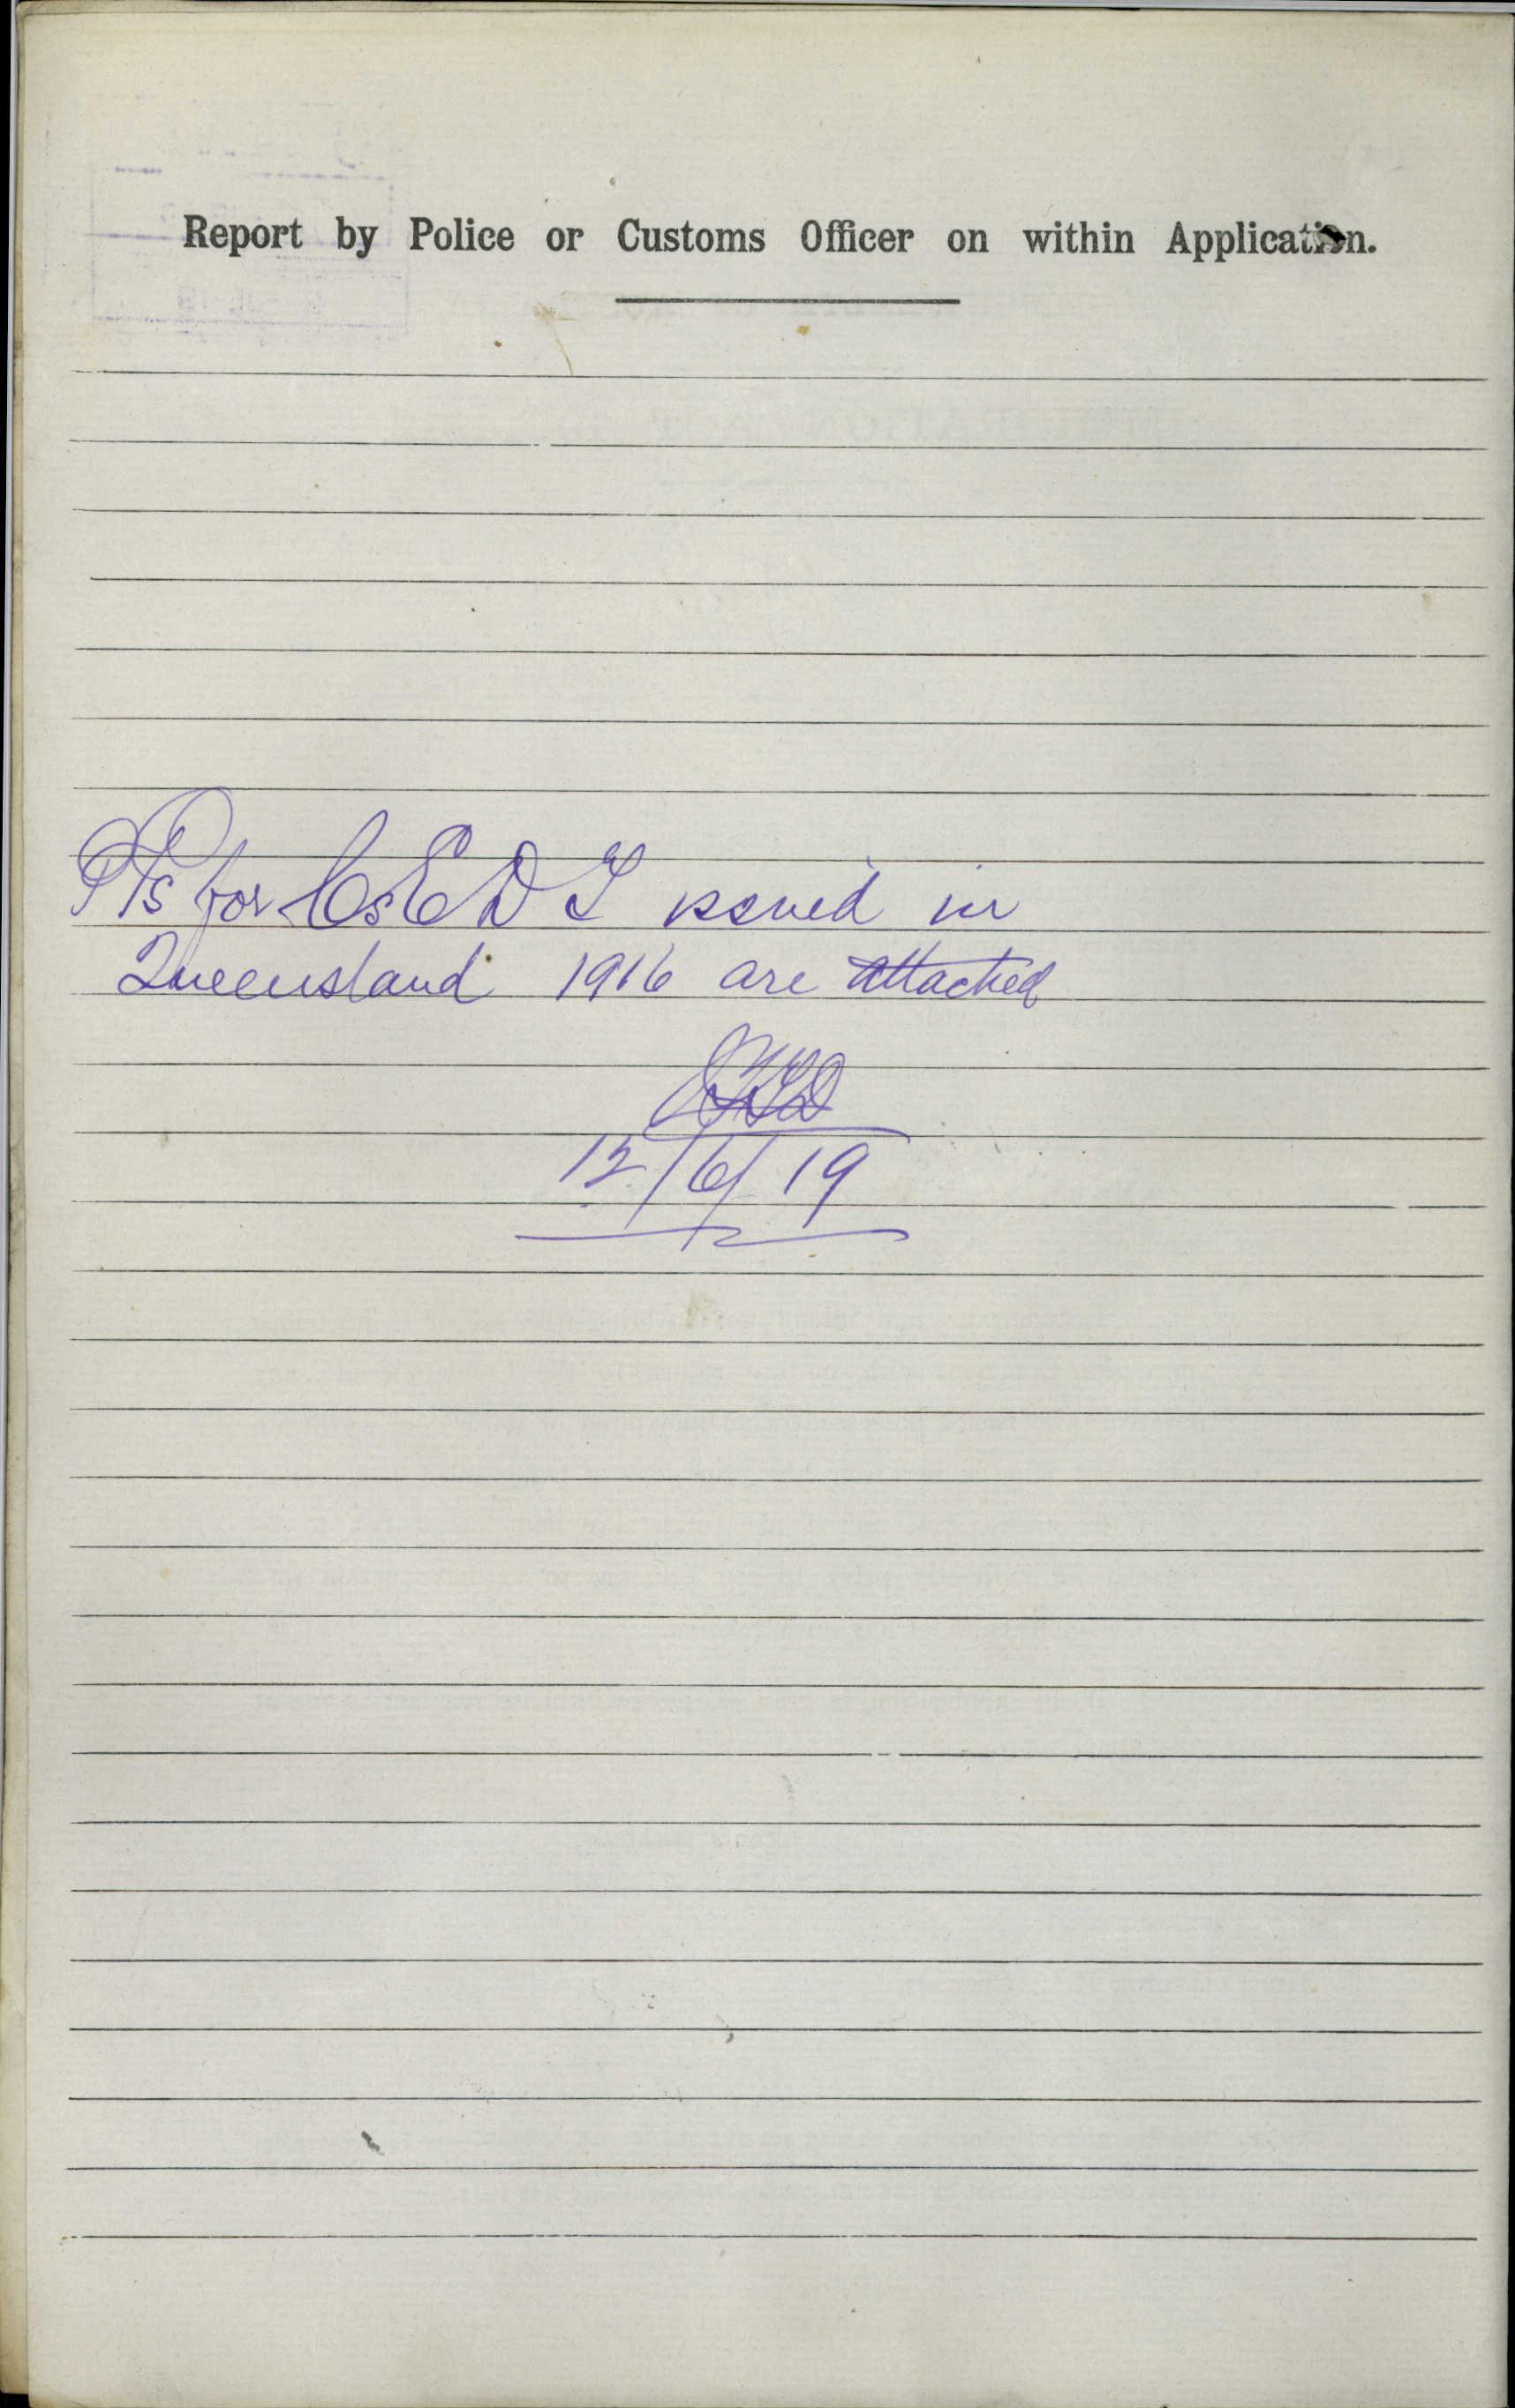 Report by Police or Customs Officer on within Application.
PPs for CsEDT issued in
Queensland 1916 are attached
12/6/19